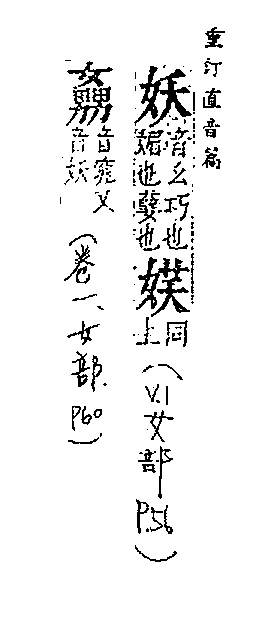 重訂直音篇
妖音么巧也媚也孽也媄同上(V.1女部P.56)
音窕又音妖(卷一、女部.P60)